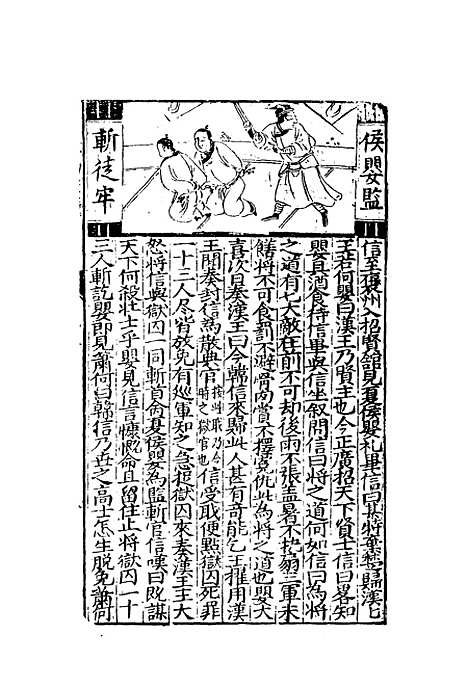 侯嬰監
斬徒牢
信至襃州入招賢館見夏侯嬰礼畢信曰某將棄楚歸漢也
王若何嬰曰漢王乃賢王也今正廣招天下賢士信曰畧知
嬰且酒食待信畢與信坐叙間信曰將之道何如信曰為將
之道有七大敵在前不可却後雨不張盖暑不扢扇三軍未
饍將不可食罰不避骨肉賞不擇冤仇此為將之道也嬰大
喜次日奏漢王曰今韓信來歸此人甚有奇能乞王擢用漢
王聞奏封信為散典官按此職乃今時之獄官也信受取便點獄囚死罪
一十三人尽皆放免有巡軍知之急提獄囚來奏漢王王大
怒將信與獄囚一同斬首命夏侯嬰為監斬官信嘆曰既謀
天下何殺壮士乎嬰見信言慷慨命且留住止將獄囚一十
三人斬訖嬰即見蕭何曰韓信乃世之高士怎生脫免蕭何